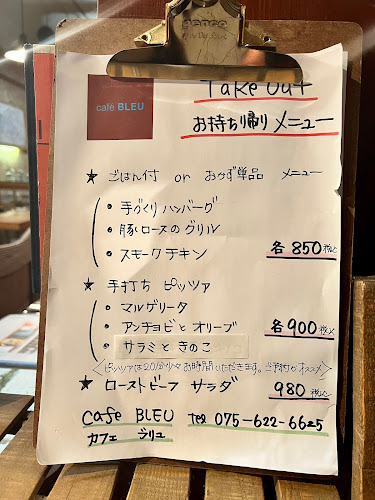 café BLEU
Take Out
お持ち帰り メニュー
★ ごはん付 or おかず単品 メニュー
・手づくりハンバーグ
・豚ロースのグリル
・スモークチキン
各850税込
★ 手打ち ピッツァ
・マルゲリータ
・アンチョビとオリーブ
・サラミときのこ
各900税込
〈ピッツァは20分少々お時間いただきます。ご予約がオススメ〉
★ ローストビーフ サラダ 980税込
Cafe BLEU Tel 075-622-6625
カフェ ブリュ